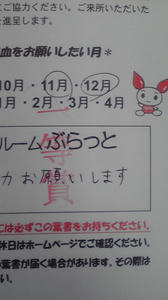 ご協力ください。ご来所いただいた
を進呈します。
血をお願いしたい月*
10月・11月・12月
1月・2月・3月・4月
ルームぷらっと
等賞
力 お願いします
には必ずこの葉書をお持ちください。
休日はホームページでご確認ください。
の葉書が届く場合があります。その際は